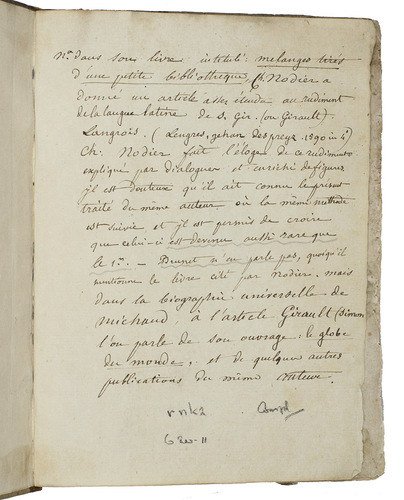 Nᵃ. dans son livre intitulé: melanges tirés
d'une petite bibliothèque, Ch. Nodier a
donné un article assez étendu au rudiment
de la langue latine de S. Gir. (ou Girault).
Langrois. (Langres, jehan des preyz. 1590 in 4°)
Ch: Nodier fait l'éloge de ce rudiment
expliqué par dialogues et enrichi de figures
jl est douteux qu'il ait connu le present
traité du même auteur où la même methode
est suivie et jl est permis de croire
que celui-ci est devenu aussi rare que
le 1er. — Brunet n'en parle pas, quoiqu'il
mentionne le livre cité par Nodier. mais
dans la biographie universelle de
michaud, à l'article Girault (Simon
l'on parle de son ouvrage: le globe
du monde, et de quelques autres
publications du même auteur.